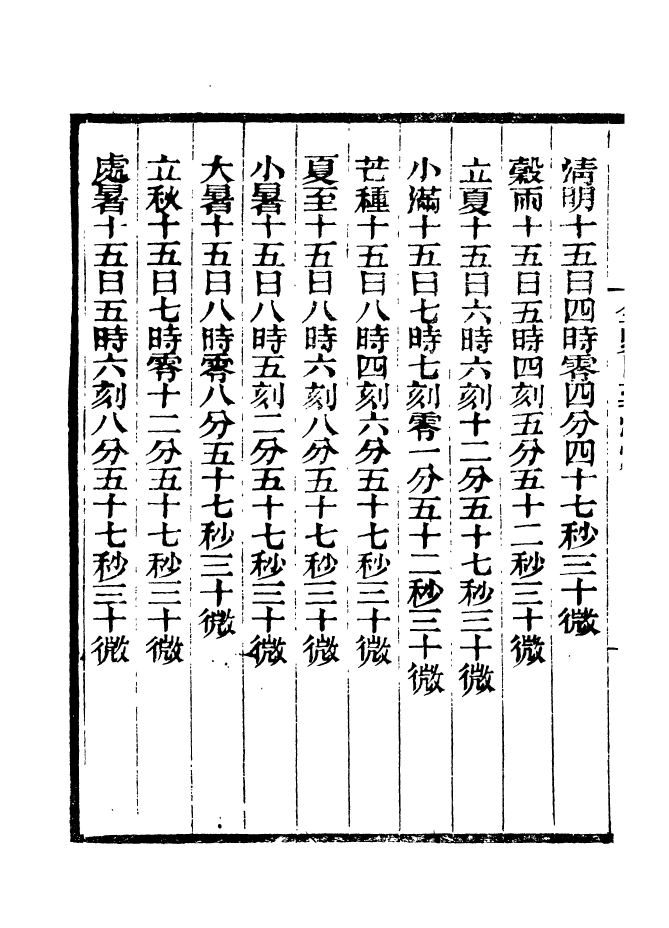 淸明十五日四時零四分四十七秒三十微
穀雨十五日五時四刻五分五十二秒三十微
立夏十五日六時六刻十二分五十七秒三十微
小滿十五日七時七刻零一分五十二秒三十微
芒種十五日八時四刻六分五十七秒三十微
夏至十五日八時六刻八分五十七秒三十微
小暑十五日八時五刻二分五十七秒三十微
大暑十五日八時零八分五十七秒三十微
立秋十五日七時零十二分五十七秒三十微
處暑十五日五時六刻八分五十七秒三十微